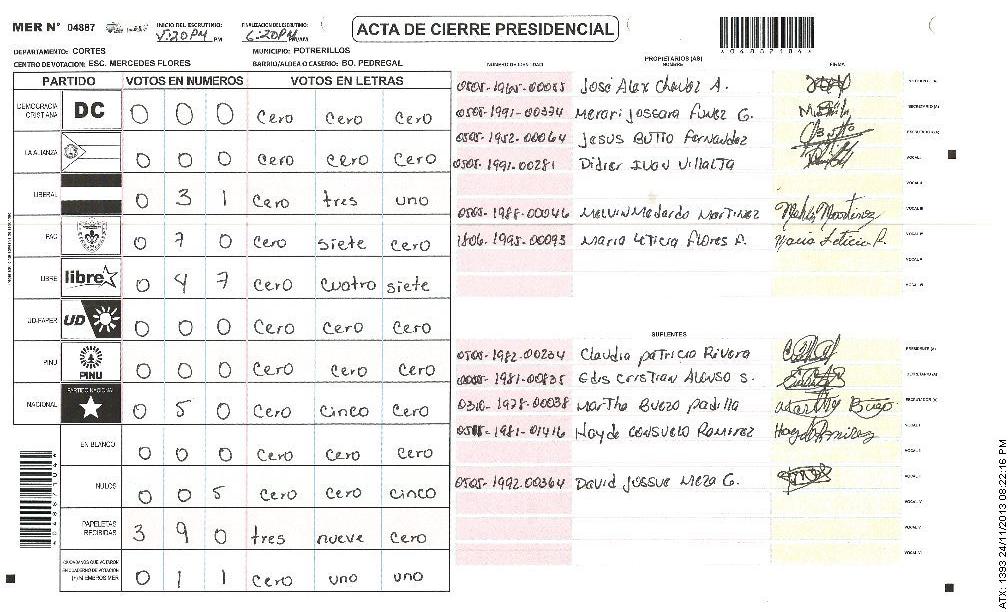 MER N° 04887 INICIO DEL ESCRUTINIO: 5:20PM PM FINALIZACION DEL ESCRUTINIO: 6:20PM ACTA DE CIERRE PRESIDENCIAL
DEPARTAMENTO: CORTES MUNICIPIO: POTRERILLOS
CENTRO DE VOTACION: ESC. MERCEDES FLORES BARRIO/ALDEA O CASERIO: BO. PEDREGAL
PARTIDO VOTOS EN NUMEROS VOTOS EN LETRAS
DEMOCRACIA CRISTIANA DC 0 0 0 cero cero cero
LA ALIANZA 0 0 0 cero cero cero
LIBERAL 0 3 1 cero tres uno
PAC 0 7 0 cero siete cero
LIBRE libre 0 4 7 cero cuatro siete
UD-FAPER UD 0 0 0 cero cero cero
PINU PINU 0 0 0 cero cero cero
NACIONAL PARTIDO NACIONAL 0 5 0 cero cinco cero
EN BLANCO 0 0 0 cero cero cero
NULOS 0 0 5 cero cero cinco
PAPELETAS RECIBIDAS 3 9 0 tres nueve cero
CIUDADANOS QUE VOTARON EN CUADERNO DE VOTACION (+) MIEMBROS MER 0 1 1 cero uno uno
PROPIETARIOS (AS)
NUMERO DE IDENTIDAD NOMBRE FIRMA
José Alex Chavez A.
0508-1991-00334 Merari Jossara Funez G.
0508-1952-00064 Jesus BUTTO Fernandez
0508-1991-00281 Didier IVan Villalta VOCAL I
VOCAL II
0508-1988-00046 MELVIN Medardo MARTINEZ VOCAL III
1806-1995-00093 Maria Leticia Flores P. Maria Leticia P. VOCAL IV
VOCAL V
VOCAL VI
SUPLENTES
0508-1982-00234 Claudia patricia Rivera PRESIDENTE (A)
1981-00835 Edis Cristian ALONSO S. SECRETARIO (A)
0310-1978-00038 Martha Buezo padilla ESCRUTADOR (A)
0508-1981-01416 Hayde CONSUELO RAMIREZ VOCAL I
VOCAL II
0508-1992-00364 David Jossue Meza G. VOCAL III
VOCAL IV
VOCAL V
VOCAL VI
ATX: 1393 24/11/2013 08:22:16 PM